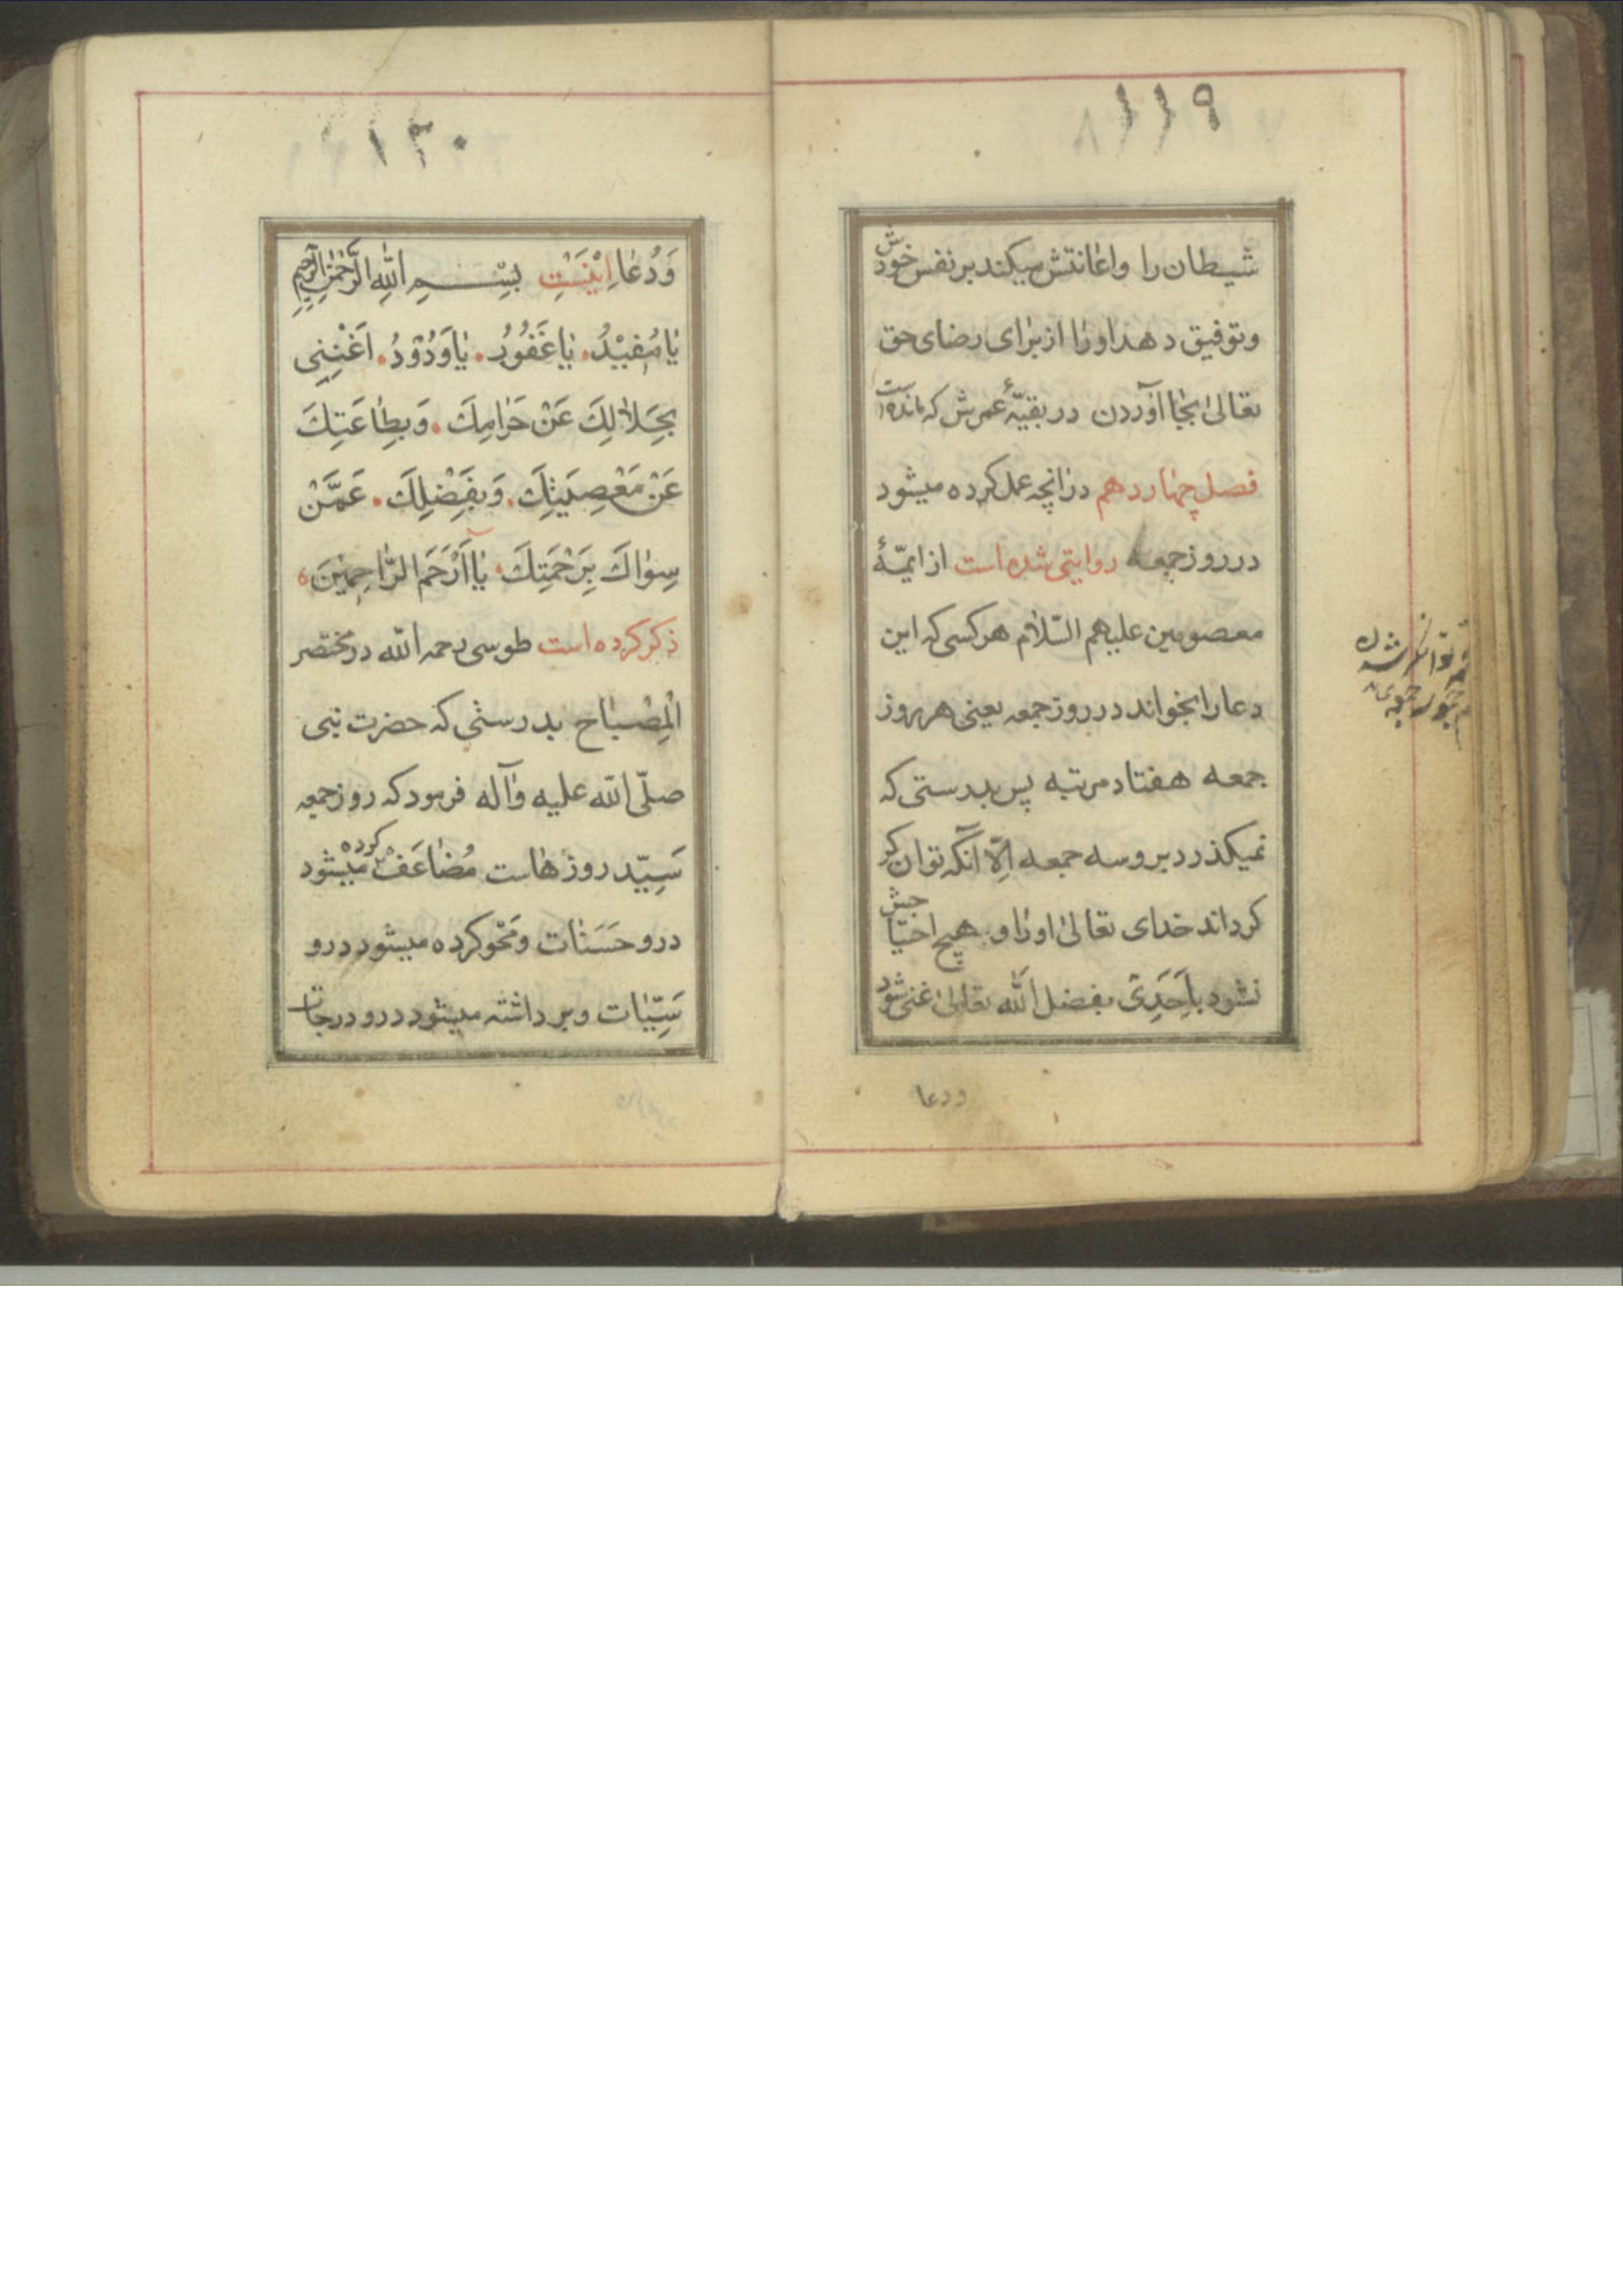 ١١٩
شیطان را واعانتش میکند بر نفس خودش
وتوفیق دهد اورا از برای رضای حق
تعالی بجا آوردن در بقیّهٔ عمرش که مانده است
فصل چهاردهم در انچه عمل کرده میشود
در روز جمعه روایتی شده است از ایمّهٔ
معصومین علیهم السّلام هر کسی که این
دعا را بخواند در روز جمعه یعنی هر روز
جمعه هفتاد مرتبه پس بدرستی که
نمیکذرد بر و سه جمعه اِلّا آنکه توان کر
کرداند خدای تعالی اورا و هیچ احتیاجش
نشود باَحَدِی بفضل اللّه تعالی غنی شود
ودعا
توانکر شدن
١٢٠
وَدُعا اِیْنَسْتِ بِسْمِ اللّهِ الرَّحْمٰنِ الرَّحیمِ
یٰا مُفیْدُ. یٰا غَفُوُرُ. یٰا وَدُوْدُ. اَغْنِنِی
بِحَلاٰلِكَ عَنْ حَرٰامِكَ. وَبِطٰاعَتِكَ
عَنْ مَعْصِیَتِكَ. وَبِفَضْلِكَ. عَمَّنْ
سِوٰاكَ بِرَحْمَتِكَ یٰا اَرْحَمَ الرّٰاحِمِیْنَ
ذکر کرده است طوسی رحمه اللّه در مختصر
الْمِصْبٰاح بدرستی که حضرت نبی
صلّی اللّه علیه وآله فرمود که روز جمعه
سَیِّد روزهاست مُضٰاعَفْ کرده میشود
درو حَسَنٰات ومَحْو کرده میشود درو
سَیِّئات وبر داشته میشود درو درجات